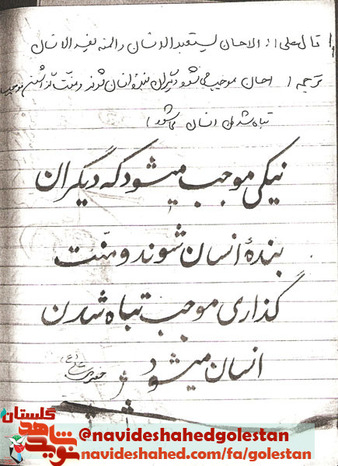 قال علی: الاحسان یستعبد الانسان و المنة یفسد الانسان
ترجمه: احسان موجب می شود دیگران بنده انسان شوند و منت گذاشتن موجب
تباه شدن انسان می شود
نیکی موجب میشود که دیگران
بندهٔ انسان شوند و منّت
گذاری موجب تباه شدن
انسان میشود
گلستان
نوید شاهد
@navideshahedgolestan
navideshahed.com/fa/golestan